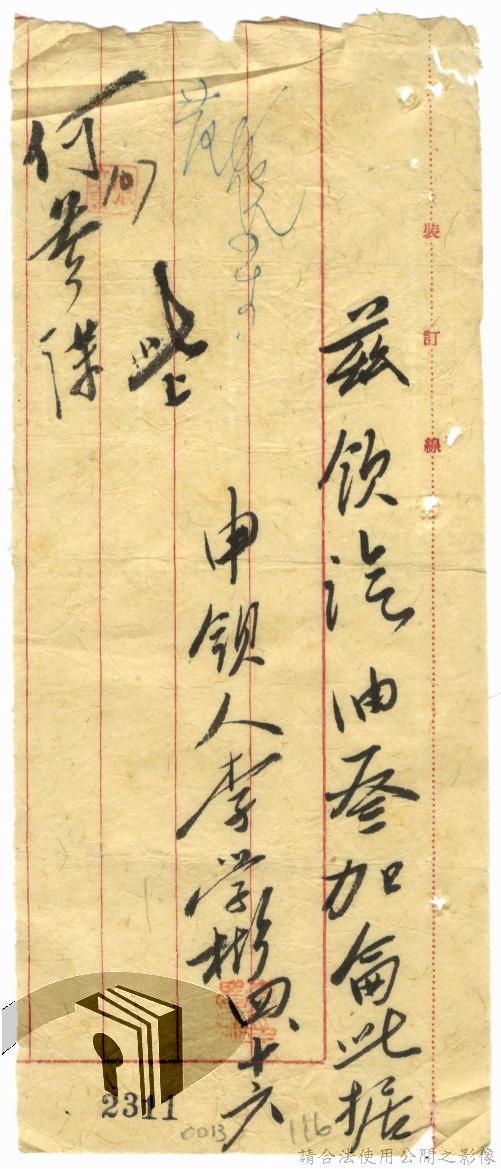 裝訂線
茲領汽油叁加侖此据
申領人李学彬 四、十六
何
107
2311
0013
116
請合法使用公開之影像